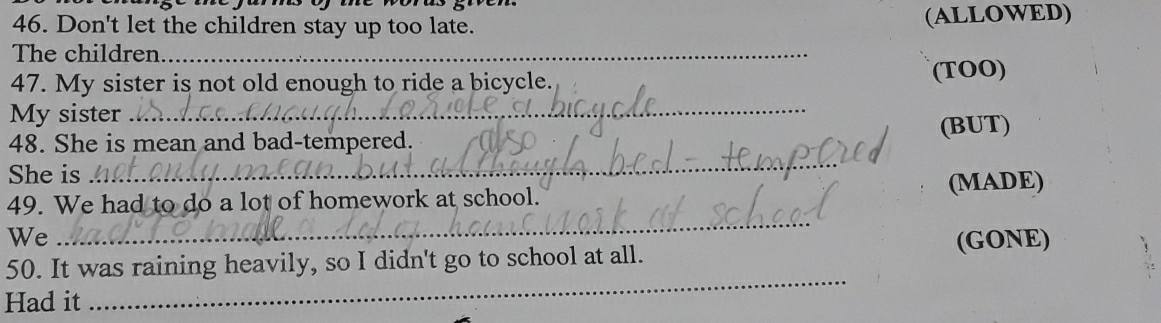 46. Don't let the children stay up too late. (ALLOWED)
The children..........
47. My sister is not old enough to ride a bicycle. (TOO)
My sister is too enough to ride a bicycle
48. She is mean and bad-tempered. (BUT)
also
She is not only mean but although bed-tempered
49. We had to do a lot of homework at school. (MADE)
We had to made a lot of homework at school
50. It was raining heavily, so I didn't go to school at all. (GONE)
Had it ..........